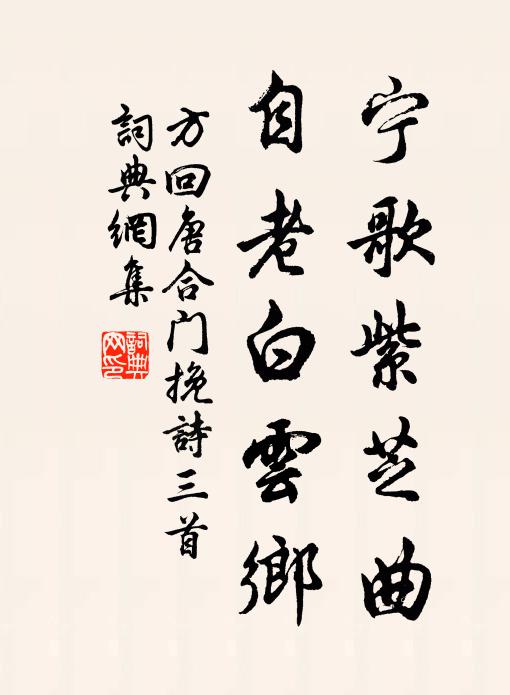 宁歌紫芝曲
自老白雲鄉
方回唐合门挽詩三首
詞典網集
詞典网印